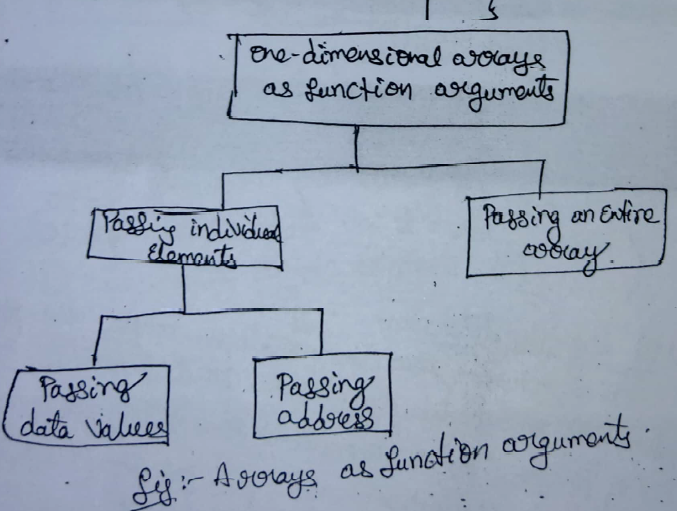 one-dimensional arrays
as function arguments
Passing individual
Elements
Passing an Entire
array.
Passing
data values
Passing
address
fig:- Arrays as function arguments.